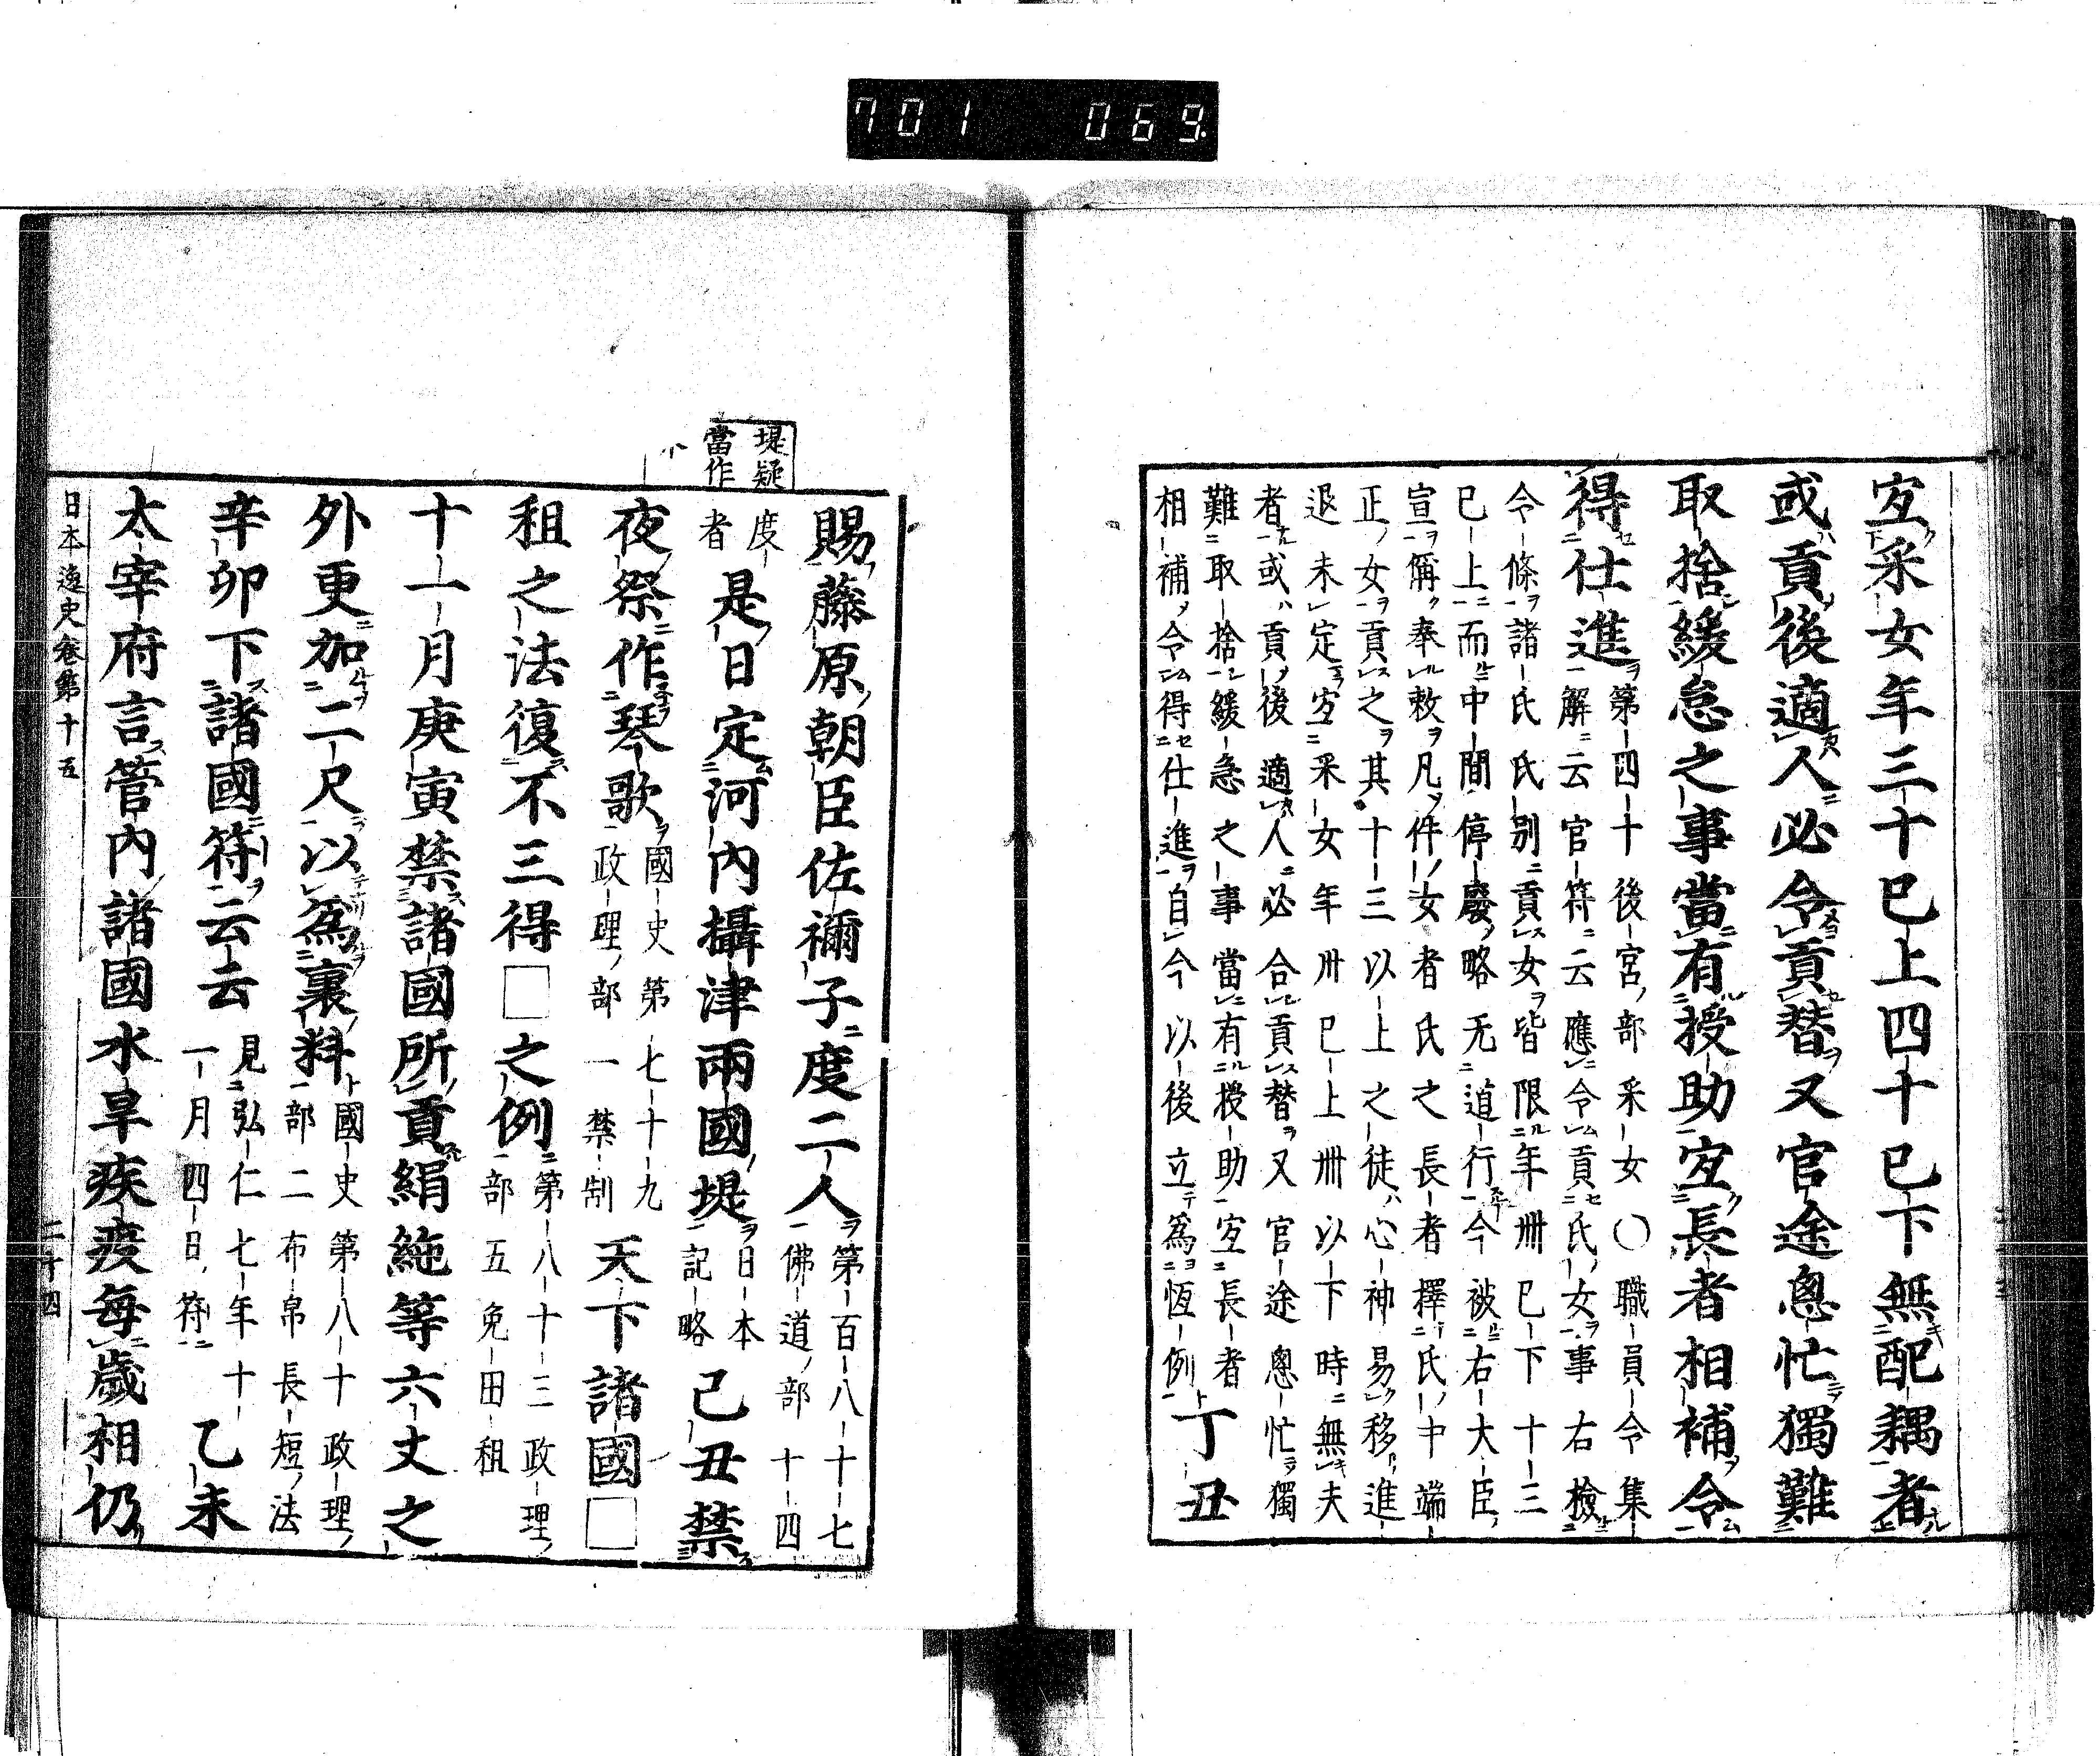 701 069
定采女年三十已上四十已下無配耦者
或貢後適人必令貢替又官途怱忙獨難
取捨緩怠之事當有授助定長者相補令
得仕進
第四十後宮部采女○職員令集
解云官符云應令貢氏女事右檢
令條諸氏氏別貢女皆限年卅已下十三
已上而中間停廢略无道行今被右大臣
宣偁奉敕凡件女者氏之長者擇氏中端
正女貢之其十三以上之徒心神易移進
退未定定采女年卅已上卌以下時無夫
者或貢後適人必合貢替又官途怱忙獨
難取捨緩急之事當有授助定長者
相補令得仕進自今以後立爲恆例
丁丑
堤疑
當作
賜藤原朝臣佐禰子度二人
第百八十七
佛道部十四
度
者
是日定河內攝津兩國堤
日本
記略
己丑禁
夜祭作琴歌
國史第七十九
政理部一禁制
天下諸國□
租之法復不三得□之例
第八十三政理
部五免田租
十一月庚寅禁諸國所貢絹絁等六丈之
外更加二尺以爲裏料
國史第八十政理
部二布帛長短法
辛卯下諸國符云云
見弘仁七年十
一月四日符
乙未
太宰府言管內諸國水旱疾疫每歲相仍
日本逸史卷第十五
二十四